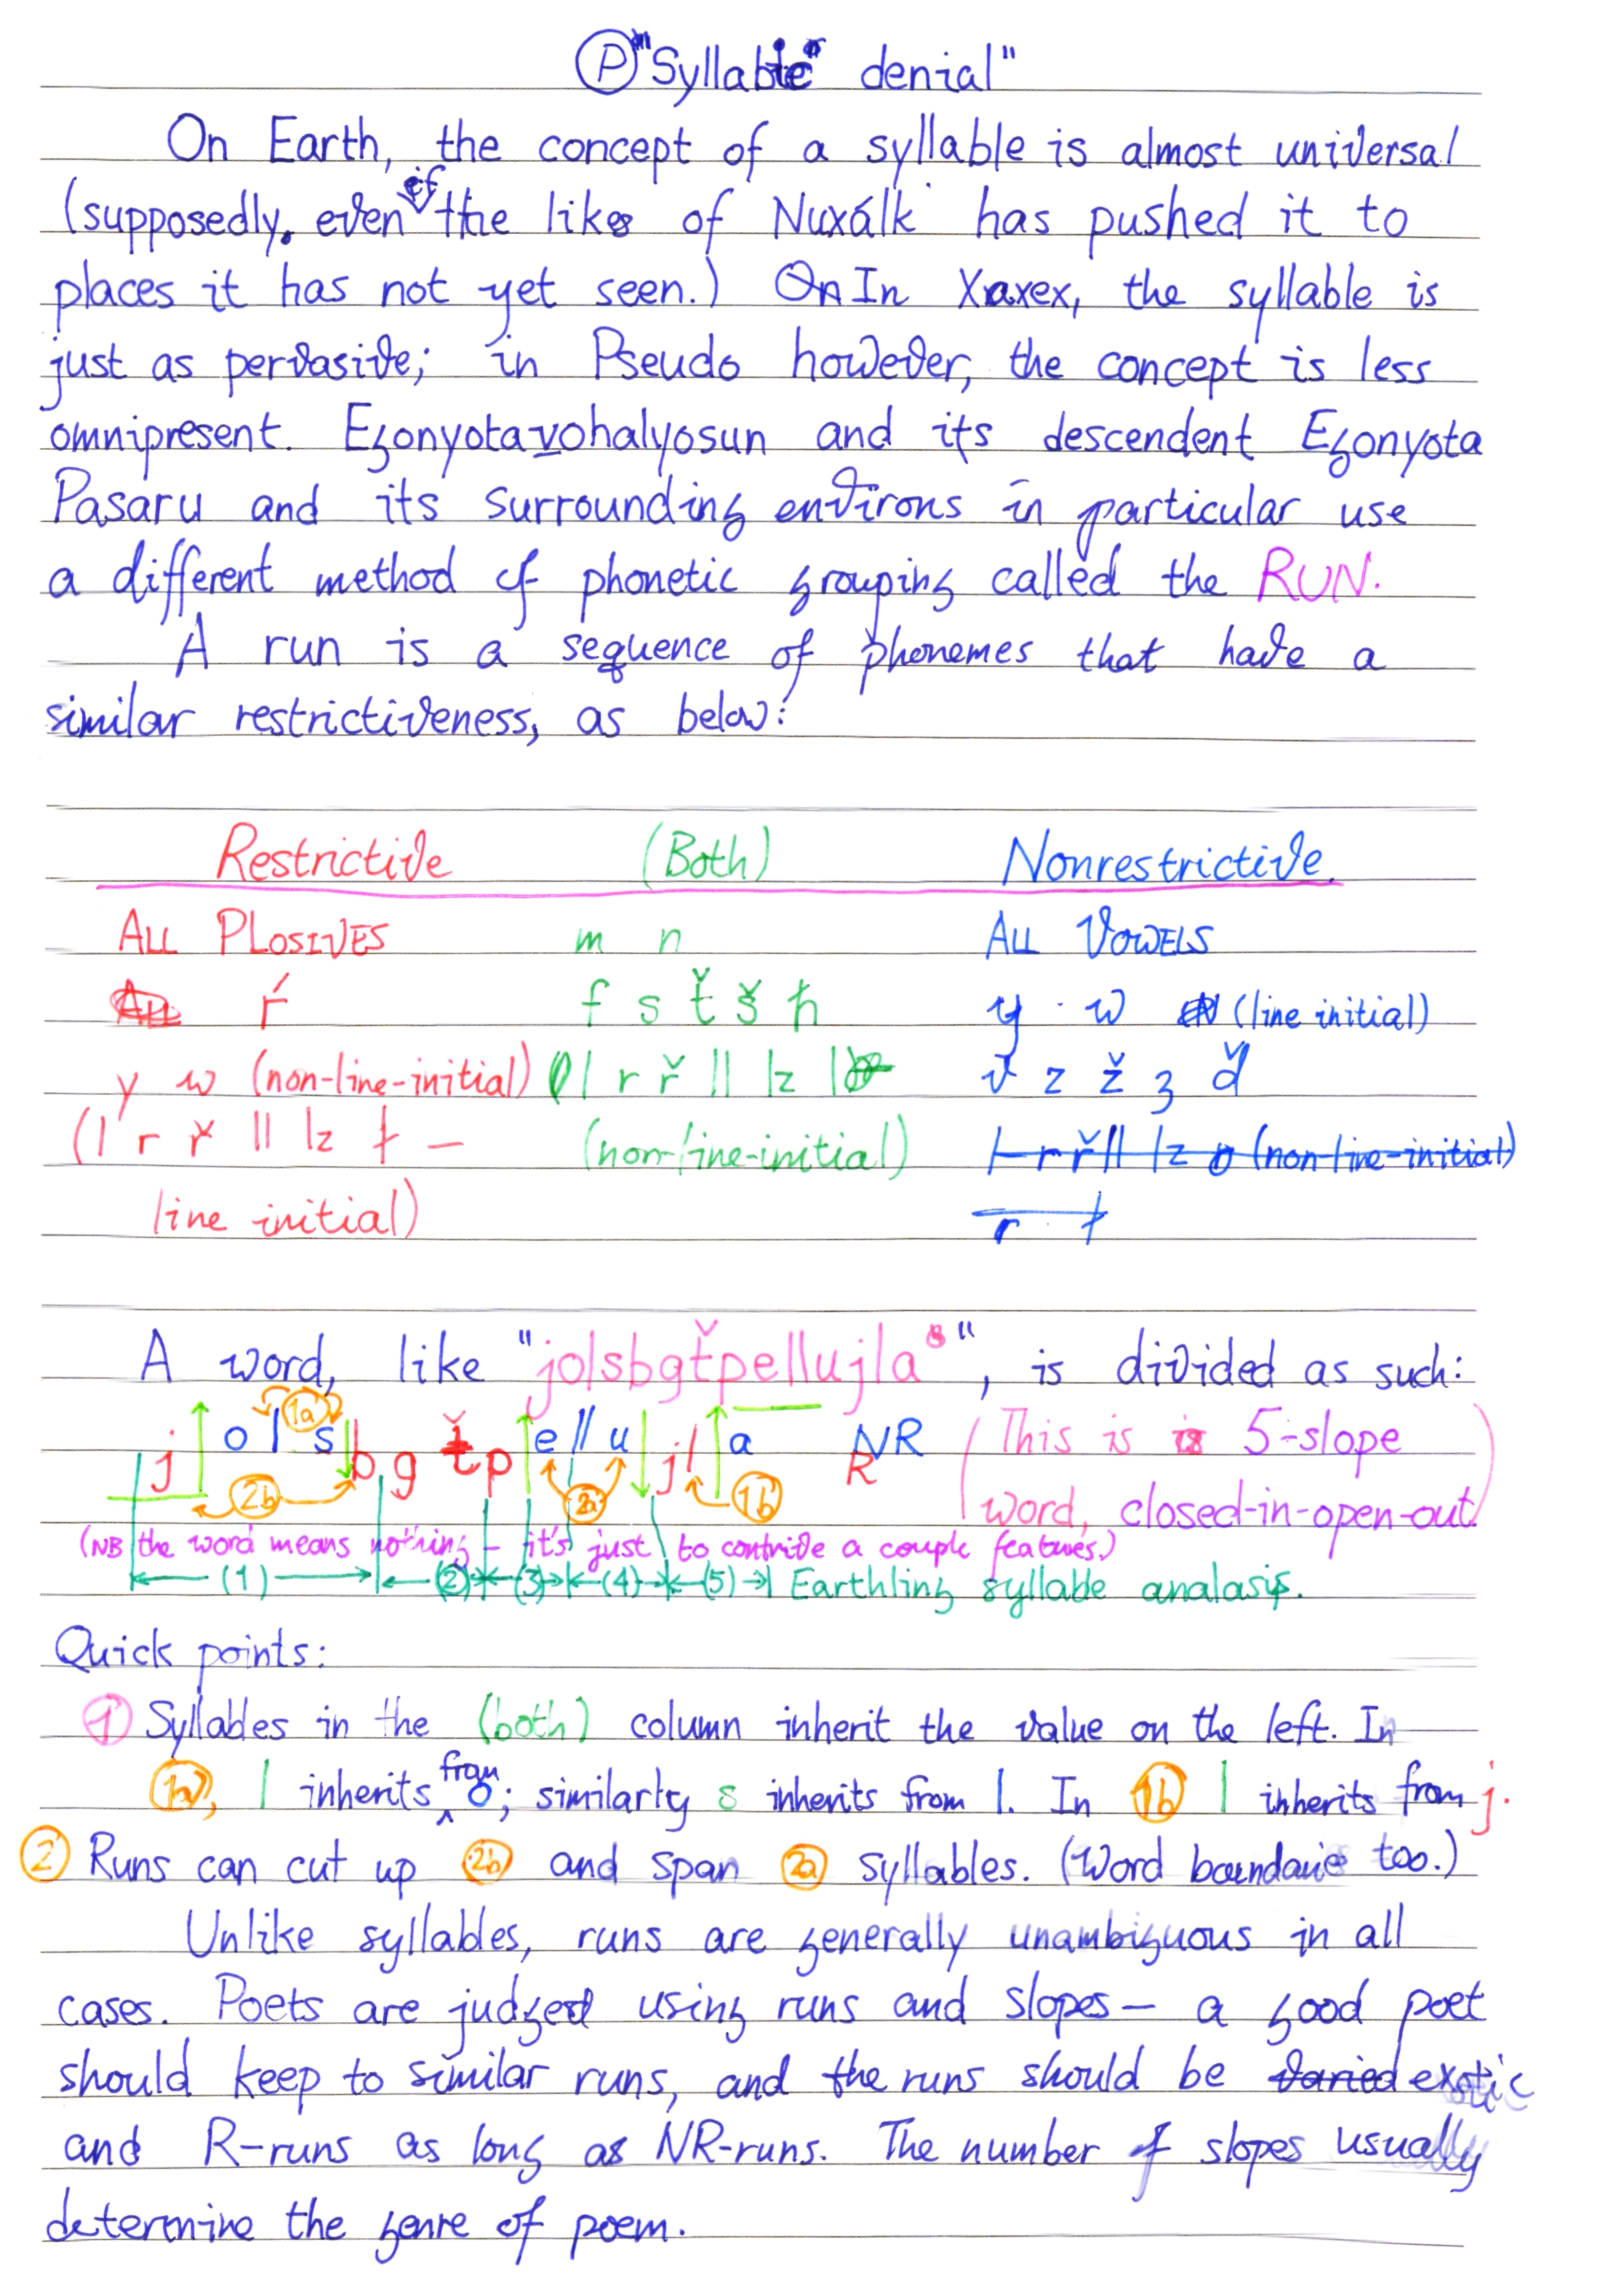 Ⓟ "Syllable" denial"
On Earth, the concept of a syllable is almost universal
(supposedly, even if the likes of Nuxálk has pushed it to
places it has not yet seen.) On In Xaxex, the syllable is
just as pervasive; in Pseudo however, the concept is less
omnipresent. Egonyotavohalyosun and its descendent Egonyota
Pasaru and its surrounding environs in particular use
a different method of phonetic grouping called the RUN.
A run is a sequence of phonemes that have a
similar restrictiveness, as below:
Restrictive (Both) Nonrestrictive
ALL PLOSIVES m n ALL VOWELS
ŕ f s ť š ħ y w (line initial)
y w (non-line-initial) l r ř ll lz v z ž ʒ ď
(l r ř ll lz ɫ — (non-line-initial) l r ř ll lz (non-line-initial)
line initial) r ɫ
A word, like "jolsbgťpellujla", is divided as such:
1a
j o l s b g ť p e ll u j l a NR R (This is 5-slope
2b 2a 1b word, closed-in-open-out)
(NB the word means nothing - it's just to contrive a couple features.)
(1) (2) (3) (4) (5) Earthling syllable analasis.
Quick points:
① Syllables in the (both) column inherit the value on the left. In
1a, l inherits from o; similarly s inherits from l. In 1b l inherits from j.
② Runs can cut up 2b and span 2a syllables. (Word boundaries too.)
Unlike syllables, runs are generally unambiguous in all
cases. Poets are judged using runs and slopes— a good poet
should keep to similar runs, and the runs should be varied exotic
and R-runs as long as NR-runs. The number of slopes usually
determine the genre of poem.